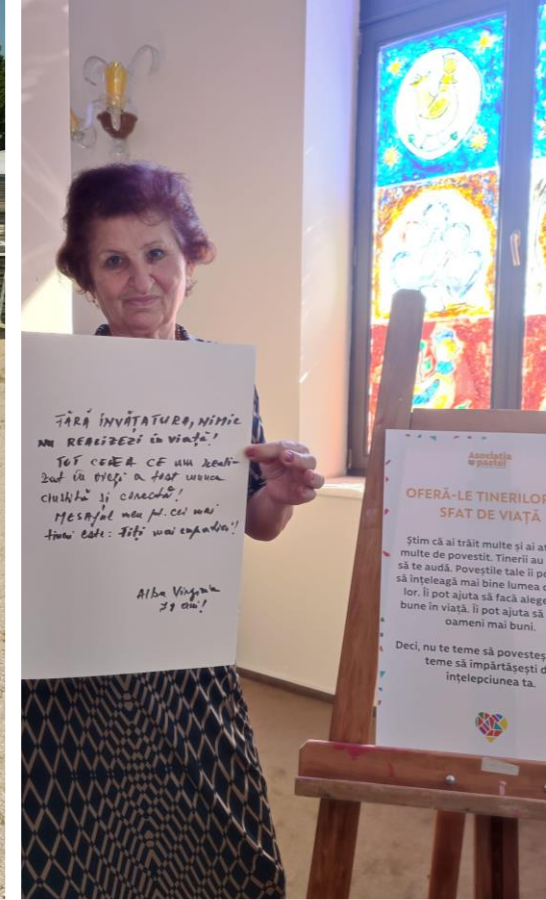 FĂRĂ INVĂȚATURA, NIMIC
NU REALIZEZI în viață!
TOT CEEA CE am reali-
zat în viață a fost munca
cinstită și corectă!
MESAJUL meu pt. cei mai
tineri este: Fiți mai empatici!
Alba Virginia
ani!
Asociația
pastel
OFERĂ-LE TINERILOR
SFAT DE VIAȚĂ
Știm că ai trăit multe și ai af
multe de povestit. Tinerii au
să te audă. Poveștile tale îi po
să înțeleagă mai bine lumea
lor. Îi pot ajuta să facă alege
bune în viață. Îi pot ajuta să
oameni mai buni.
Deci, nu te teme să povesteș
teme să împărtășești d
înțelepciunea ta.